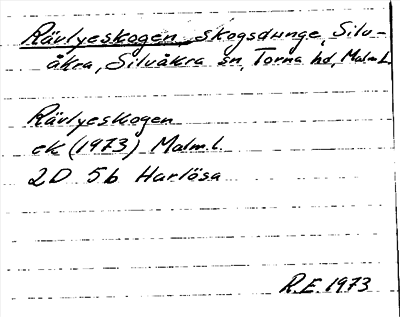 Rävlyeskogen, skogsdunge, Silv-
åkra, Silvåkra sn, Torna hd, Malm.L
Rävlyeskogen
ek (1973) Malm.l.
2D 5b Harlösa
R.E. 1973